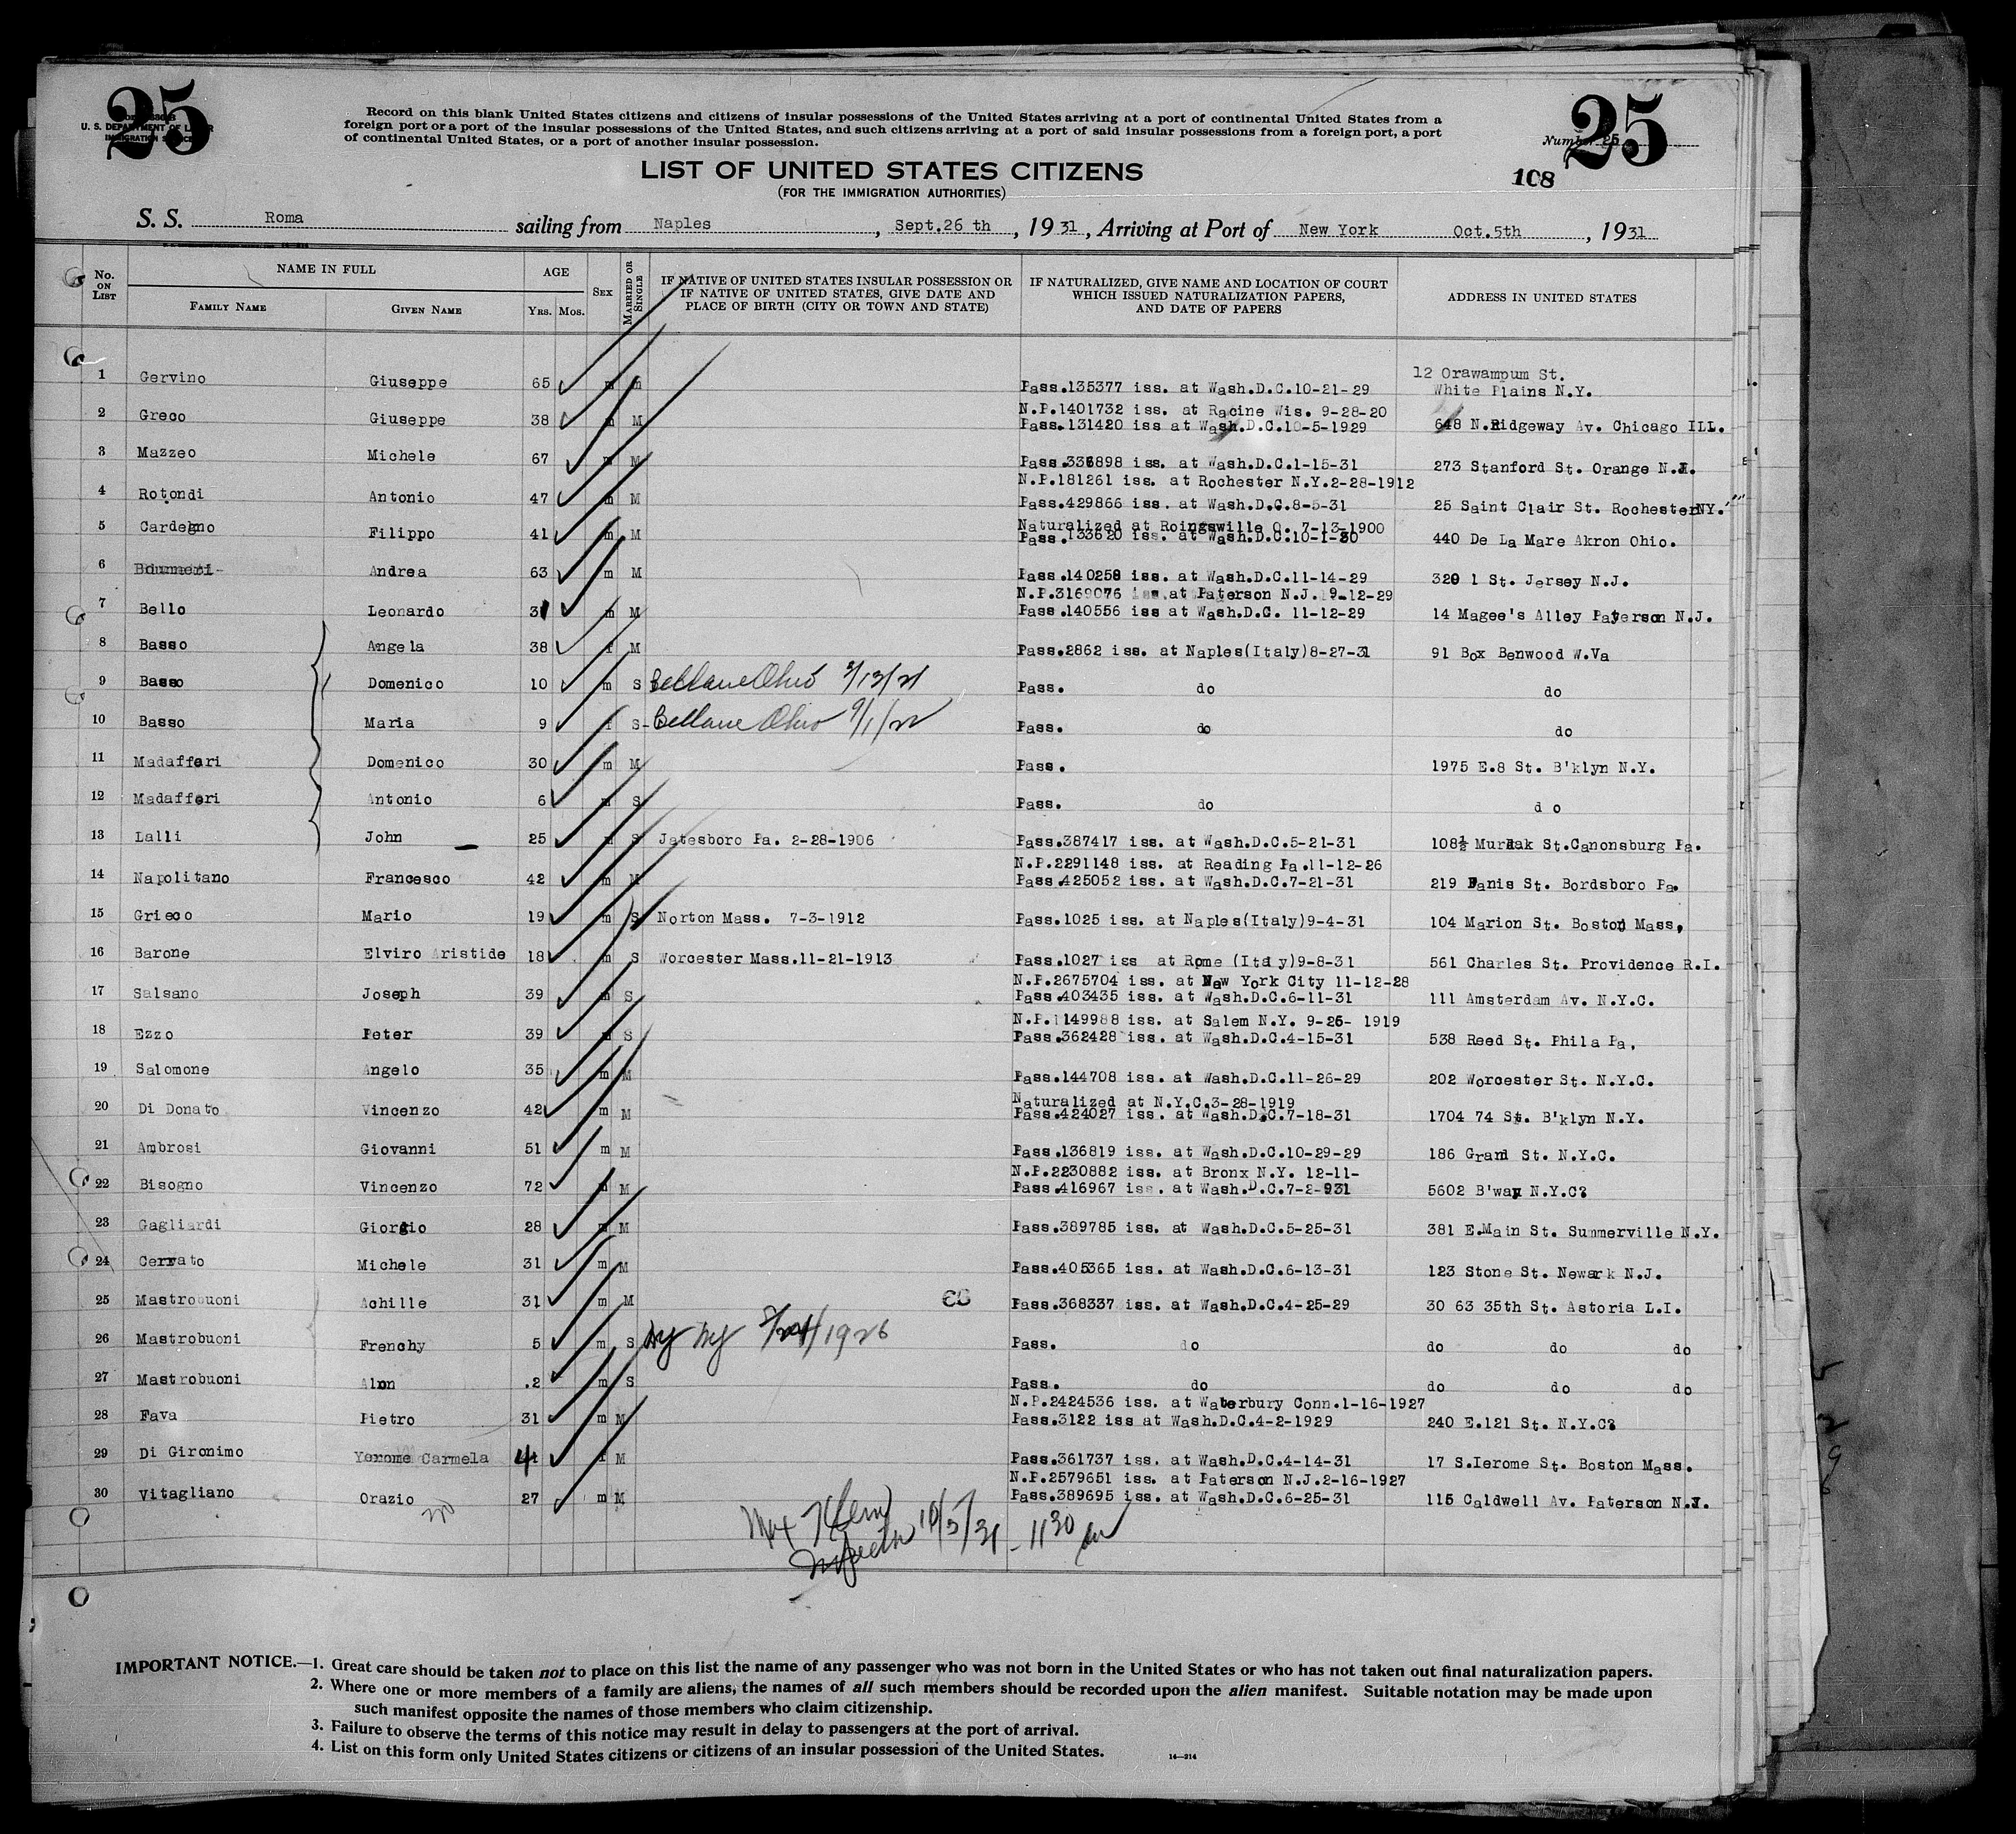 25
U. S. DEPARTMENT OF LABOR
IMMIGRATION SERVICE
Record on this blank United States citizens and citizens of insular possessions of the United States arriving at a port of continental United States from a
foreign port or a port of the insular possessions of the United States, and such citizens arriving at a port of said insular possessions from a foreign port, a port
of continental United States, or a port of another insular possession.
25
Number 25
108
LIST OF UNITED STATES CITIZENS
(FOR THE IMMIGRATION AUTHORITIES)
S. S. Roma sailing from Naples, Sept.26 th, 1931, Arriving at Port of New York Oct.5th, 1931
No. ON LIST
NAME IN FULL
FAMILY NAME
GIVEN NAME
AGE
YRS. MOS.
SEX
MARRIED OR SINGLE
IF NATIVE OF UNITED STATES INSULAR POSSESSION OR
IF NATIVE OF UNITED STATES, GIVE DATE AND
PLACE OF BIRTH (CITY OR TOWN AND STATE)
IF NATURALIZED, GIVE NAME AND LOCATION OF COURT
WHICH ISSUED NATURALIZATION PAPERS,
AND DATE OF PAPERS
ADDRESS IN UNITED STATES
12 Orawampum St.
1 Gervino Giuseppe 65 m m Pass.135377 iss. at Wash.D.C.10-21-29 White Plains N.Y.
N.P.1401732 iss. at Racine Wis. 9-28-20
2 Greco Giuseppe 38 m M Pass.131420 iss at Wash.D.C.10-5-1929 648 N.Ridgeway Av. Chicago ILL.
3 Mazzeo Michele 67 m M Pass.336898 iss. at Wash.D.C.1-15-31 273 Stanford St. Orange N.J.
N.P.181261 iss. at Rochester N.Y.2-28-1912
4 Rotondi Antonio 47 m M Pass.429866 iss. at Wash.D.C.8-5-31 25 Saint Clair St. Rochester NY.
Naturalized at Roingswille O. 7-13-1900
5 Cardegno Filippo 41 m M Pass.133620 iss. at Wash.D.C.10-1-30 440 De La Mare Akron Ohio.
6 Andrea 63 m M Pass.140258 iss. at Wash.D.C.11-14-29 329 1 St. Jersey N.J.
N.P.3169076 iss.at Paterson N.J. 9-12-29
7 Bello Leonardo 31 m M Pass.140556 iss at Wash.D.C. 11-12-29 14 Magee's Alley Payerson N.J.
8 Basso Angela 38 f M Pass.2862 iss. at Naples(Italy)8-27-31 91 Box Benwood W.Va
9 Basso Domenico 10 m S Bellaire Ohio Pass. do do
10 Basso Maria 9 f S Bellaire Ohio 9/1/22 Pass. do do
11 Madafferi Domenico 30 m M Pass. 1975 E.8 St. B'klyn N.Y.
12 Madafferi Antonio 6 m S Pass. do d o
13 Lalli John 25 m S Jatesboro Pa. 2-28-1906 Pass.387417 iss. at Wash.D.C.5-21-31 108½ Murdak St.Canonsburg Pa.
N.P.2291148 iss. at Reading Pa.11-12-26
14 Napolitano Francesco 42 m M Pass.425052 iss. at Wash.D.C.7-21-31 219 Fanis St. Bordsboro Pa.
15 Grieco Mario 19 m S Norton Mass. 7-3-1912 Pass.1025 iss. at Naples(Italy)9-4-31 104 Marion St. Boston Mass.
16 Barone Elviro Aristide 18 m S Worcester Mass.11-21-1913 Pass.1027 iss at Rome (Italy)9-8-31 561 Charles St. Providence R.I.
N.P.2675704 iss. at New York City 11-12-28
17 Salsano Joseph 39 m S Pass.403435 iss. at Wash.D.C.6-11-31 111 Amsterdam Av. N.Y.C.
N.P.1149988 iss. at Salem N.Y. 9-26- 1919
18 Ezzo Peter 39 m S Pass.362428 iss. at Wash.D.C.4-15-31 538 Reed St. Phila Pa.
19 Salomone Angelo 35 m M Pass.144708 iss. at Wash.D.C.11-26-29 202 Worcester St. N.Y.C.
Naturalized at N.Y.C.3-28-1919
20 Di Donato Vincenzo 42 m M Pass.424027 iss. at Wash.D.C.7-18-31 1704 74 St. B'klyn N.Y.
21 Ambrosi Giovanni 51 m M Pass.136819 iss. at Wash.D.C.10-29-29 186 Grand St. N.Y.C.
N.P.2230882 iss. at Bronx N.Y. 12-11-
22 Bisogno Vincenzo 72 m M Pass.416967 iss. at Wash.D.C.7-2-931 5602 B'way N.Y.C?
23 Gagliardi Giorgio 28 m M Pass.389785 iss. at Wash.D.C.5-25-31 381 E.Main St. Summerville N.Y.
24 Cerrato Michele 31 m M Pass.405365 iss. at Wash.D.C.6-13-31 123 Stone St. Newark N.J.
25 Mastrobuoni Achille 31 m M Pass.368337 iss. at Wash.D.C.4-25-29 30 63 35th St. Astoria L.I.
26 Mastrobuoni Frenchy 5 m S Ny Ny 5/24/1926 Pass. do do do do
27 Mastrobuoni Alon .2 m S Pass. do do do do
N.P.2424536 iss. at Waterbury Conn.1-16-1927
28 Fava Pietro 31 m M Pass.3122 iss at Wash.D.C.4-2-1929 240 E.121 St. N.Y.C?
29 Di Gironimo Yerome Carmela 41 f M Pass.361737 iss. at Wash.D.C.4-14-31 17 S.Ierome St. Boston Mass.
N.P.2579651 iss. at Paterson N.J.2-16-1927
30 Vitagliano Orazio 27 m M Pass.389695 iss. at Wash.D.C.6-25-31 115 Caldwell Av. Paterson N.J.
Max Klein 10/5/31 - 11 30 am
Inspector
IMPORTANT NOTICE.—1. Great care should be taken not to place on this list the name of any passenger who was not born in the United States or who has not taken out final naturalization papers.
2. Where one or more members of a family are aliens, the names of all such members should be recorded upon the alien manifest. Suitable notation may be made upon
such manifest opposite the names of those members who claim citizenship.
3. Failure to observe the terms of this notice may result in delay to passengers at the port of arrival.
4. List on this form only United States citizens or citizens of an insular possession of the United States.
14—214